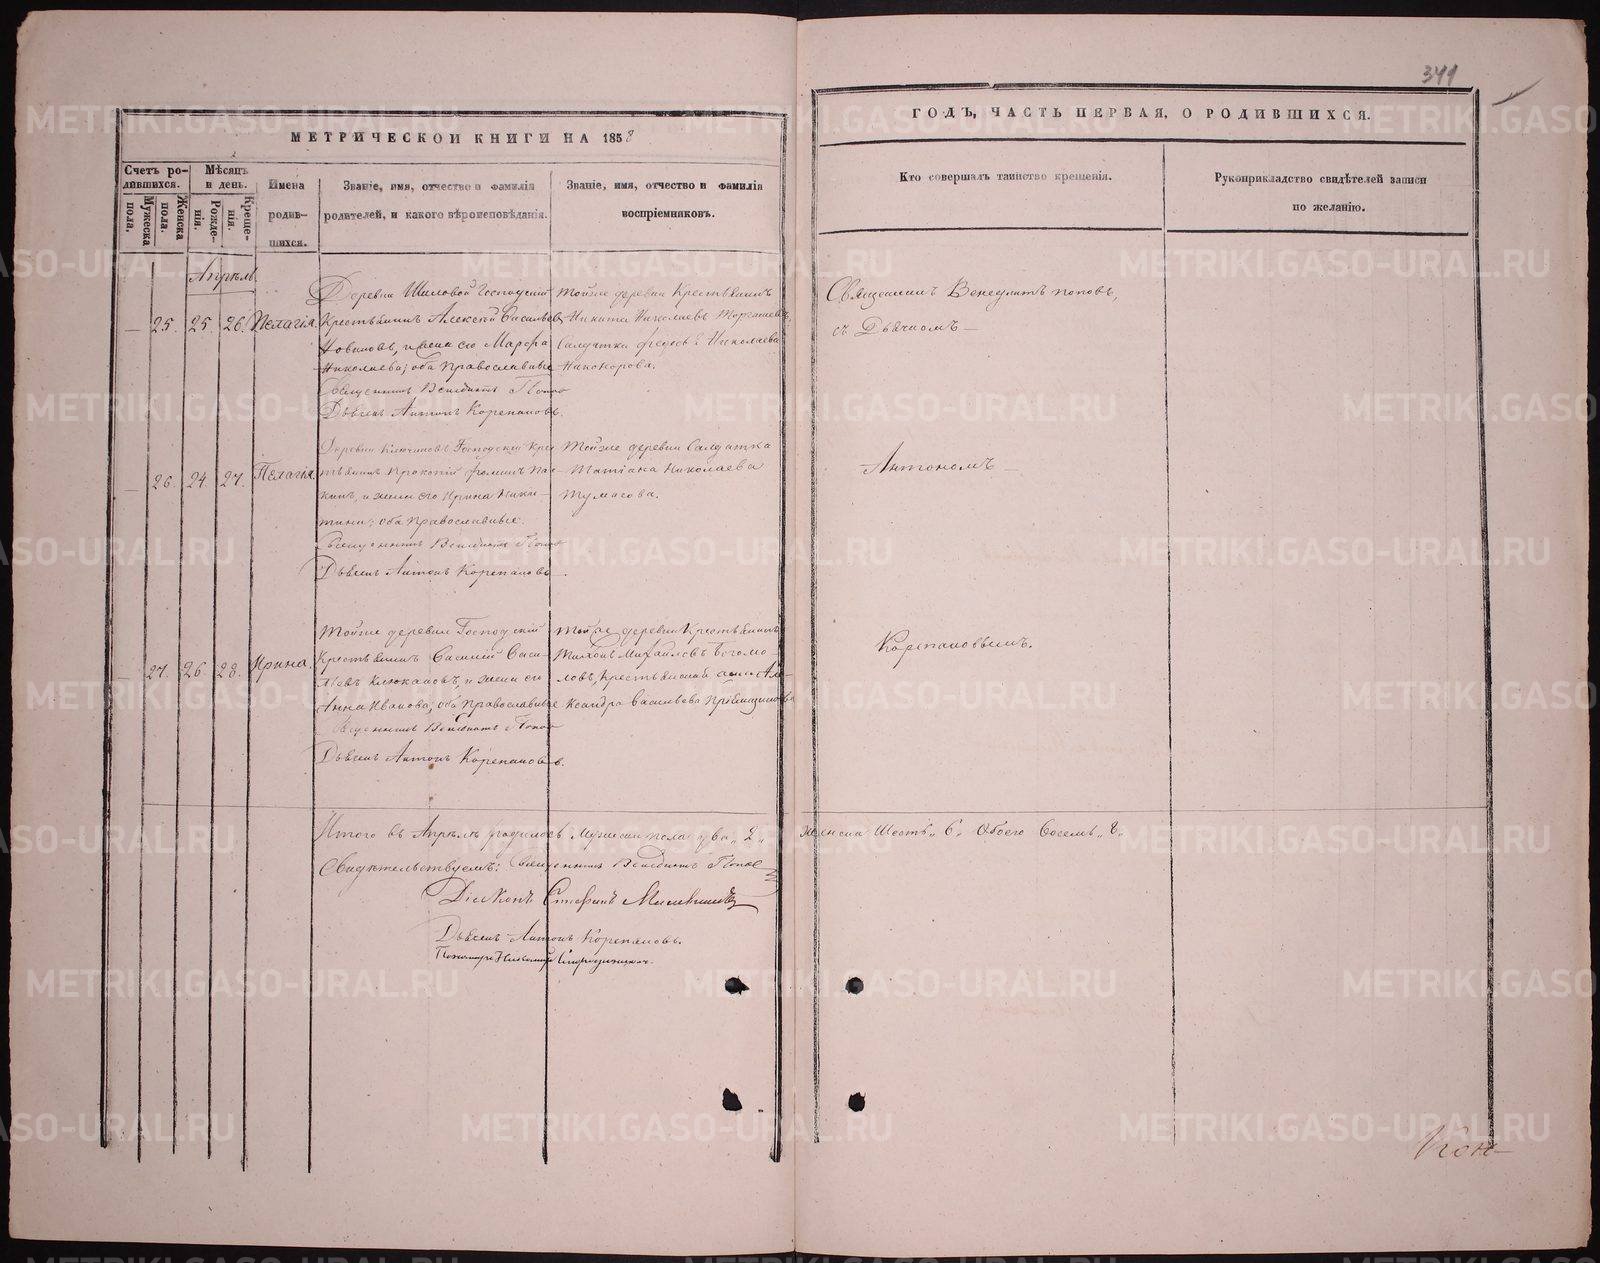 341
МЕТРИЧЕСКОЙ КНИГИ НА 1858
ГОДЪ, ЧАСТЬ ПЕРВАЯ, О РОДИВШИХСЯ.
Счетъ ро-
дившихся.
Мужеска
пола.
Женска
пола.
Мѣсяцъ
и день.
Рожде-
нія.
Креще-
нія.
Имена
родив-
шихся.
Званіе, имя, отчество и фамилія
родителей, и какого вѣроисповѣданія.
Званіе, имя, отчество и фамилія
воспріемниковъ.
Кто совершалъ таинство крещенія.
Рукоприкладство свидѣтелей записи
по желанію.
Апрѣль
25. 25. 26. Пелагія.
Деревни Шиловой Господскій
Крестьянинъ Алексѣй Васильевъ
Новиковъ, и жена его Марфа
Николаева; оба Православные
Священникъ Венедиктъ Поповъ
Дьячекъ Антонъ Корепановъ.
Тойже деревни Крестьянинъ
Никита Николаевъ
Салдатка Николаева
Никонорова.
Священникъ Венедиктъ Поповъ,
съ Дьячкомъ
26. 24. 27. Пелагія.
Деревни Господскій Крес
тьянинъ Прокопій Фоминъ
и жена его Ирина Ники-
тина; оба Православные.
Священникъ Венедиктъ Поповъ
Дьячекъ Антонъ Корепановъ.
Тойже деревни Салдатка
Татіана Николаева
Тумасова.
Антономъ
27. 26. 28. Ирина.
Тойже деревни Господскій
Крестьянинъ Василій Васи-
льевъ Клюкановъ, и жена его
Анна Иванова, оба Православные
Священникъ Венедиктъ Поповъ
Дьячекъ Антонъ Корепановъ.
Тойже деревни Крестьянинъ
Тихонъ Михайловъ Богомо-
ловъ, Крестьянская Але-
ксандра Васильева
Корепановымъ.
Итого въ Апрѣлѣ родилось Мужеска пола два „2„ женска Шесть „6„ Обоего Восемь „8„
Свидѣтельствуемъ: Священникъ Венедиктъ Поповъ
Діаконъ Стефанъ
Дьячекъ Антонъ Корепановъ.
Пономарь Николай
Кон-
METRIKI.GASO-URAL.RU